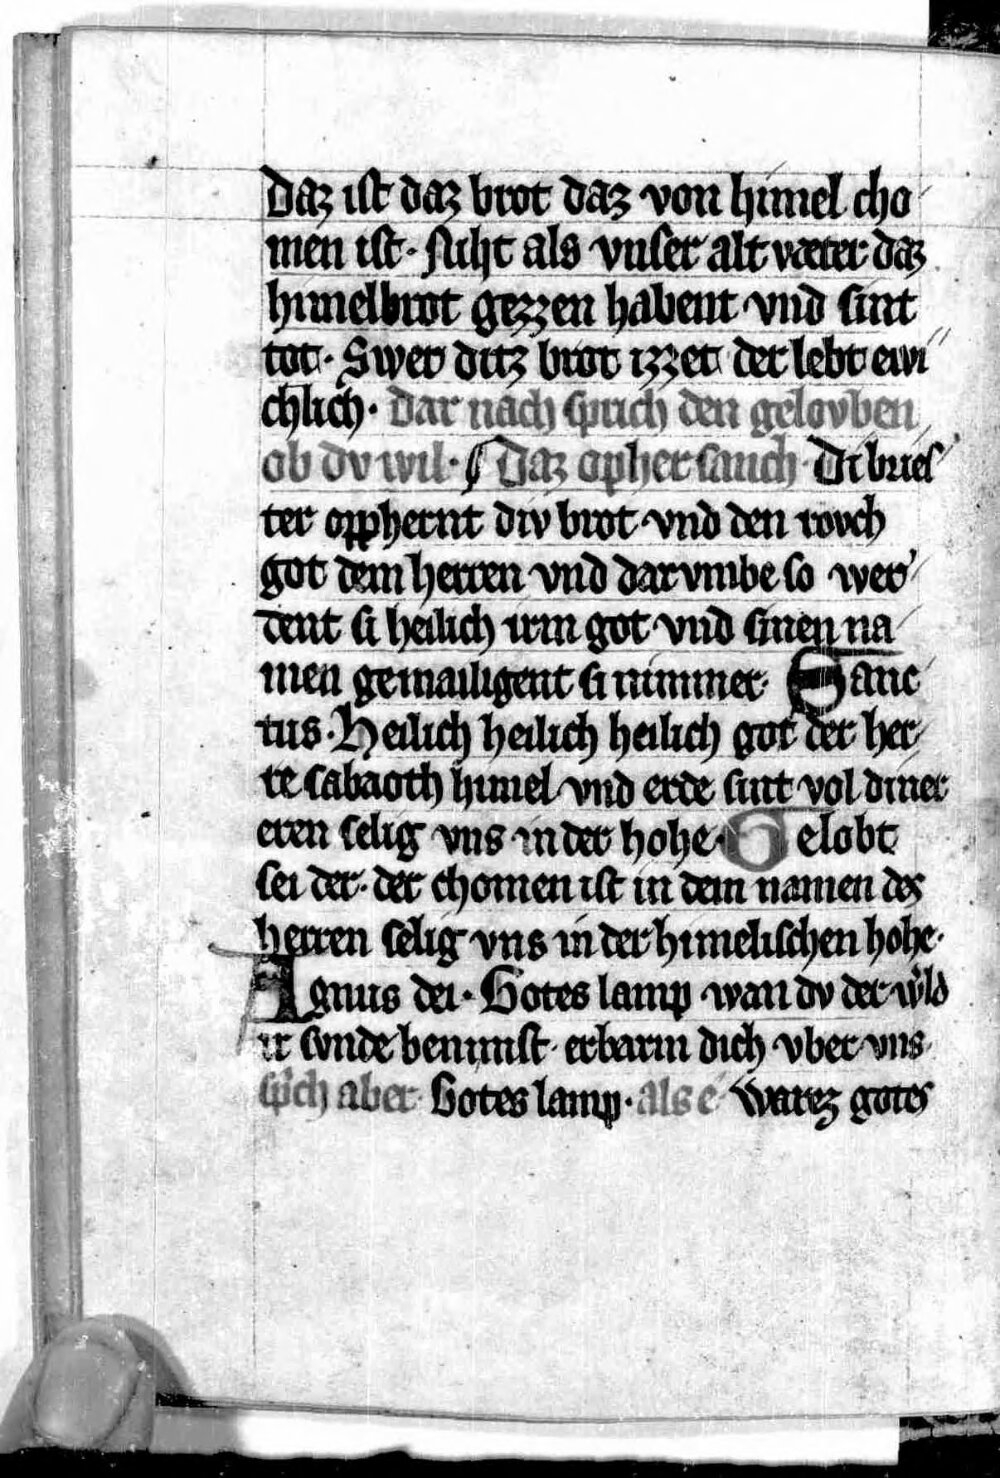 Daz ist daz brot daz von himel cho
men ist. Niht als vnser alt væter daz
himelbrot gezzen habent vnd sint
tot. Swer ditz brot izzet der lebt ewi
chlich. Dar nach sprich den gelovben
ob dv wil. Daz opher sanch Di bries
ter oppherent div brot vnd den rovch
got dem herren vnd dar vmbe so wer
dent si heilich irm got vnd sinen na
men gemailigent si nimmer. Sanc
tus. Heilich heilich heilich got der her
re sabaoth himel vnd erde sint vol diner
eren selig vns in der hohe. Gelobt
sei der. der chomen ist in dem namen des
herren selig vns in der himelischen hohe.
Agnus dei. Gotes lamp wan dv der w'ld
ir svnde benimst. erbarm dich vber vns.
sp'ch aber Gotes lamp. als e Warez gotes